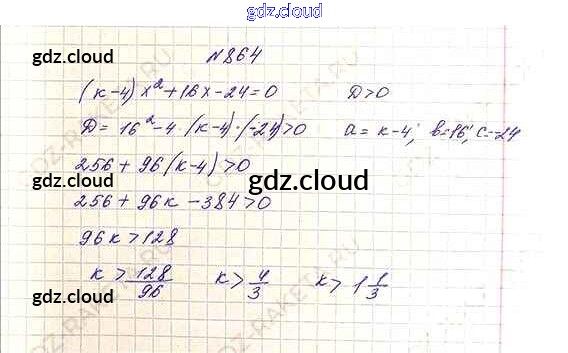 gdz.cloud
gdz.cloud №864 gdz.cloud
(к-4)x²+16x-24=0 D>0
D=16²-4·(к-4)·(-24)>0 a=к-4; b=16; c=-24
256+96(к-4)>0
gdz.cloud
256+96к-384>0
96к>128
к>128/96 к>4/3 к>1 1/3
gdz.cloud gdz.cloud